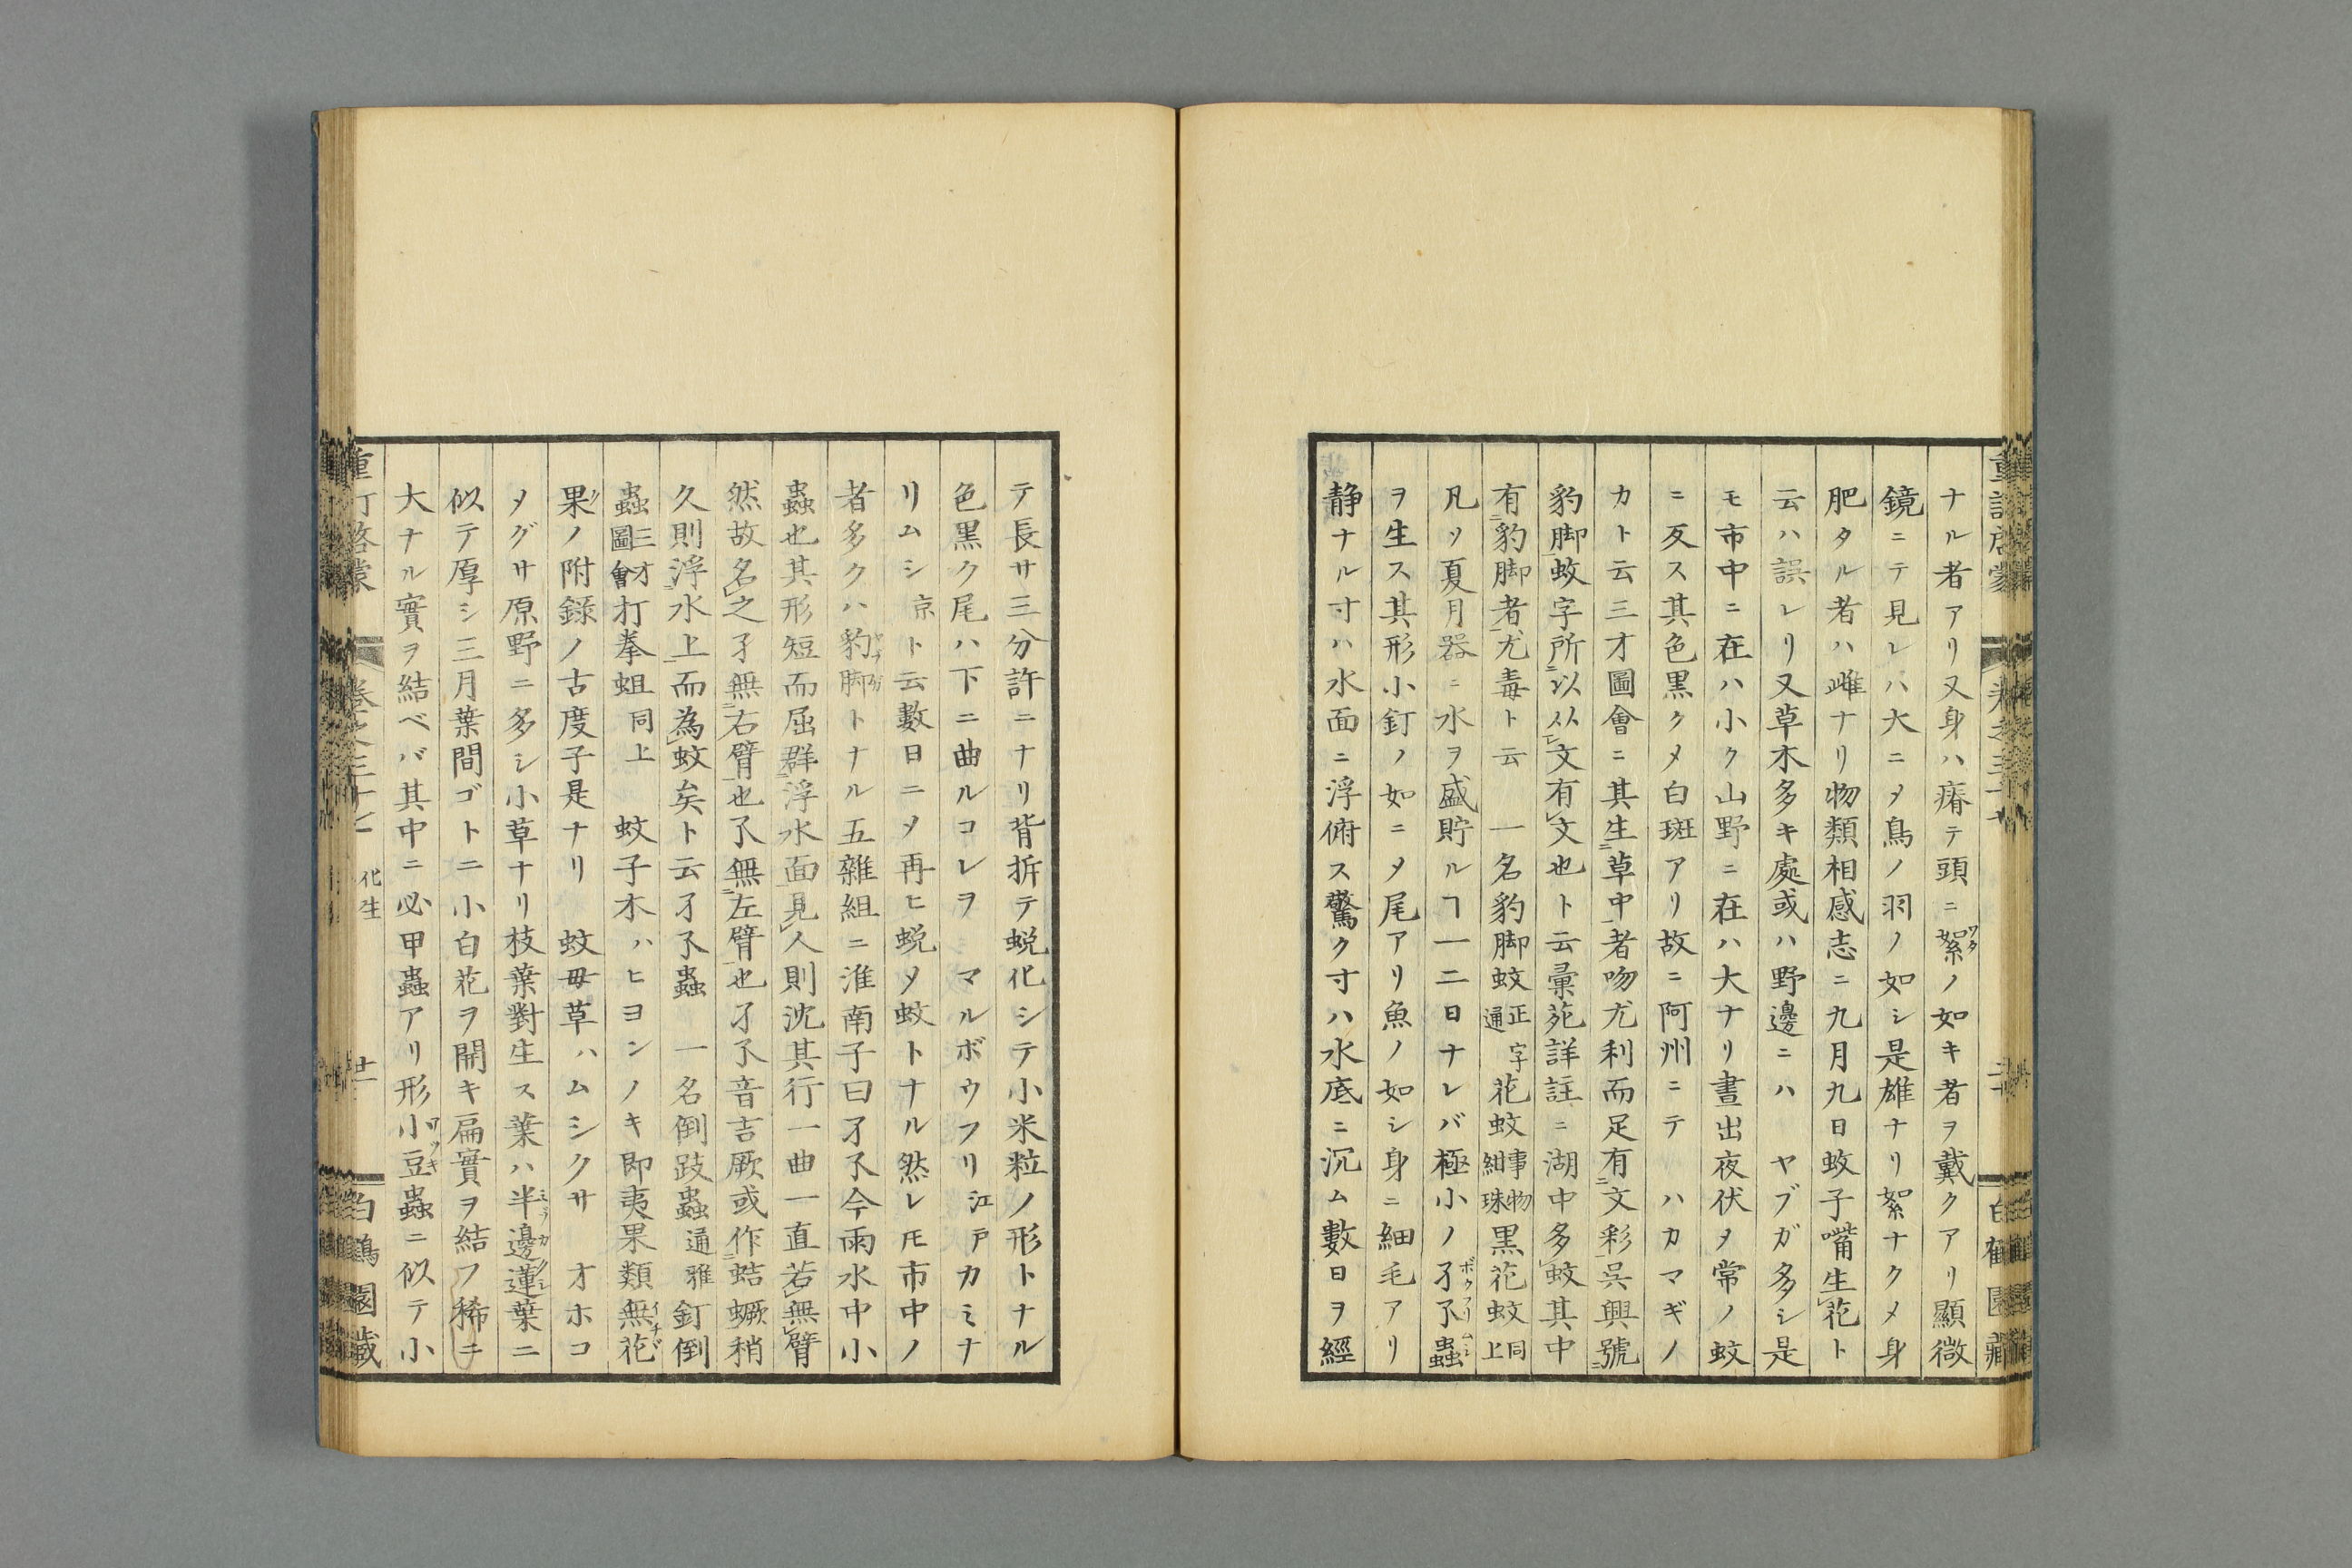 ナル者アリ又身ハ瘠テ頭ニ絮ノ如キ者ヲ戴クアリ顯微
鏡ニテ見レハ大ニメ鳥ノ羽ノ如シ是雄ナリ絮ナクメ身
肥タル者ハ雌ナリ物類相感志ニ九月九日蚊子嘴生花ト
云ハ誤レリ又草木多キ處或ハ野邊ニハ ヤブガ多シ是
モ市中ニ在ハ小ク山野ニ在ハ大ナリ晝出夜伏ヲ常ノ蚊
ニ反ス其色黒クメ白斑アリ故ニ阿州ニテ ハカマギノ
カト云三才圖會ニ其生草中者吻尤利而足有文彩呉興號
豹脚蚊字所以从文有文也ト云彙苑詳註ニ湖中多蚊其中
有豹脚者尤毒ト云 一名豹脚蚊正字通花蚊事物紺珠黒花蚊同上
凡ソ夏月器ニ水ヲ盛貯ルヿ一二日ナレバ極小ノ孑孒蟲
ヲ生ス其形小釘ノ如ニメ尾アリ魚ノ如シ身ニ細毛アリ
静ナル寸ハ水面ニ浮俯ス驚ク寸ハ水底ニ沉ム數日ヲ經
テ長サ三分許ニナリ背折テ蛻化シテ小米粒ノ形トナル
色黒ク尾ハ下ニ曲ルコレヲ マルボウフリ江戸カミナ
リムシ京ト云數日ニメ再ヒ蛻メ蚊トナル然レ𪜈市中ノ
者多クハ豹脚トナル五雜組ニ淮南子曰孑孒今雨水中小
蟲也其形短而屈群浮水面見人則沈其行一曲一直若無臂
然故名之孑無右臂也孒無左臂也孑孒音吉厥或作蛣蟩稍
久則浮水上而為蚊矣ト云孑孒蟲 一名倒跂蟲通雅釘倒
蟲三才圖會打拳蛆同上 蚊子木ハヒヨンノキ即夷果類無花
果ノ附録ノ古度子是ナリ 蚊母草ハムシクサ オホコ
メグサ原野ニ多シ小草ナリ枝葉對生ス葉ハ半邊蓮葉ニ
似テ厚シ三月葉間ゴトニ小白花ヲ開キ扁實ヲ結フ稀ニ
大ナル實ヲ結ベバ其中ニ必甲蟲アリ形小豆蟲ニ似テ小
化生